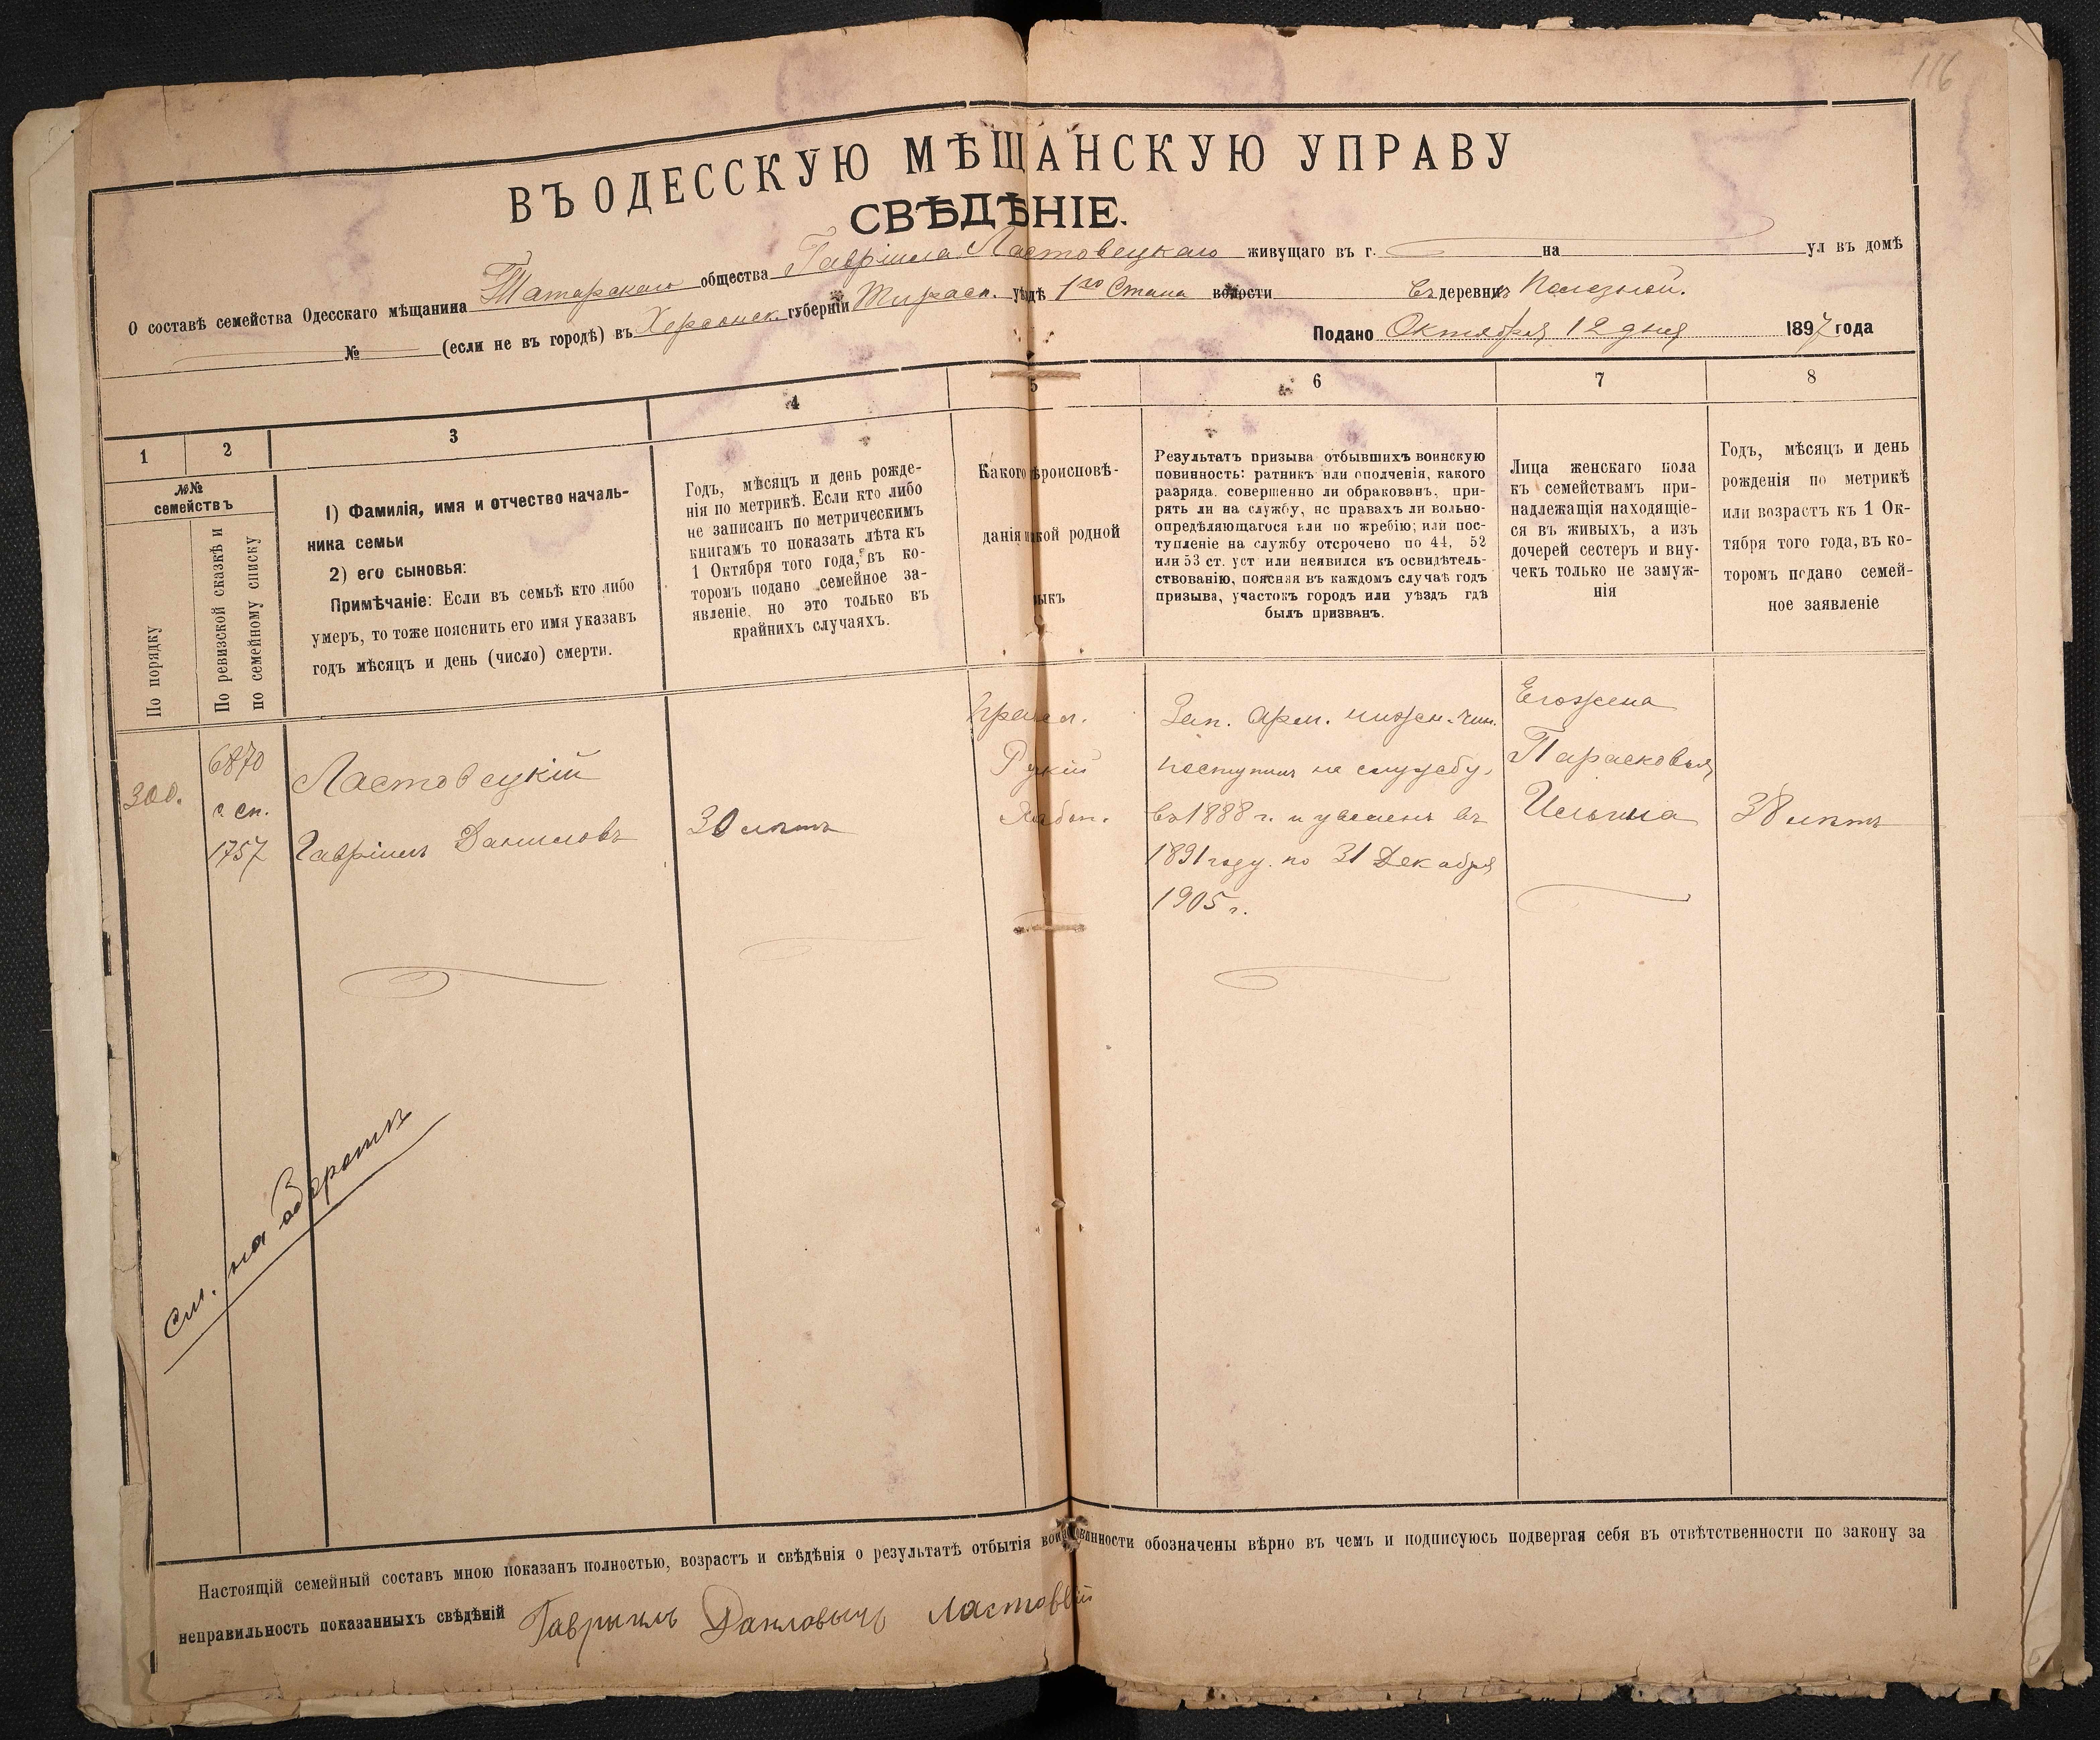 116
ВЪ ОДЕССКУЮ МѢЩАНСКУЮ УПРАВУ
СВѢДѢНІЕ.
О составѣ семейства Одесскаго мѣщанина Татарскаго общества Гавріила Ластовецкаго живущаго въ г. на ул въ домѣ
№ (если не въ городѣ) въ Херсонск. губерніи Тирасп. уѣздѣ 1го Стана волости въ деревнѣ Полезной.
Подано Октября 12 дня 1897 года
1 2 3 4 5 6 7 8
№№ семействъ
По порядку
По ревизской сказкѣ и
по семейному списку
1) Фамилія, имя и отчество началь-
ника семьи
2) его сыновья:
Примѣчаніе: Если въ семьѣ кто либо
умеръ, то тоже пояснить его имя указавъ
годъ мѣсяцъ и день (число) смерти.
Годъ, мѣсяцъ и день рожде-
нія по метрикѣ. Если кто либо
не записанъ по метрическимъ
книгамъ то показать лѣта къ
1 Октября того года, въ ко-
торомъ подано семейное за-
явленіе, но это только въ
крайнихъ случаяхъ.
Какого вѣроисповѣ-
данія и какой родной
языкъ
Результатъ призыва отбывшихъ воинскую
повинность: ратникъ или ополченія, какого
разряда, совершенно ли обракованъ, при-
рятъ ли на службу, нс правахъ ли вольно-
опредѣляющагося или по жребію; или пос-
тупленіе на службу отсрочено по 44, 52
или 53 ст. уст или неявился къ освидѣтель-
ствованію, поясняя въ каждомъ случаѣ годъ
призыва, участокъ городъ или уѣздъ гдѣ
былъ призванъ.
Лица женскаго пола
къ семействамъ при-
надлежащія находящіе-
ся въ живыхъ, а изъ
дочерей сестеръ и вну-
чекъ только не замуж-
нія
Годъ, мѣсяцъ и день
рожденія по метрикѣ
или возрастъ къ 1 Ок-
тября того года, въ ко-
торомъ подано семей-
ное заявленіе
300.
6870
с. сп.
1757
Ластовецкій
Гавріилъ Даниловъ
30 лѣтъ
Правсл.
Рускій
Зап. Арм. нижн. чин.
поступилъ на службу.
въ 1888 г. и уволенъ въ
1891 году. по 31 Декабря
1905 г.
Его жена
Парасковья
Ильина
38 лѣтъ
см. на оборотѣ
Настоящій семейный составъ мною показанъ полностью, возрастъ и свѣдѣнія о результатѣ отбытія воин. повинности обозначены вѣрно въ чемъ и подписуюсь подвергая себя въ отвѣтственности по закону за
неправильность показанныхъ свѣдѣній Гаврыилъ Даниловычъ